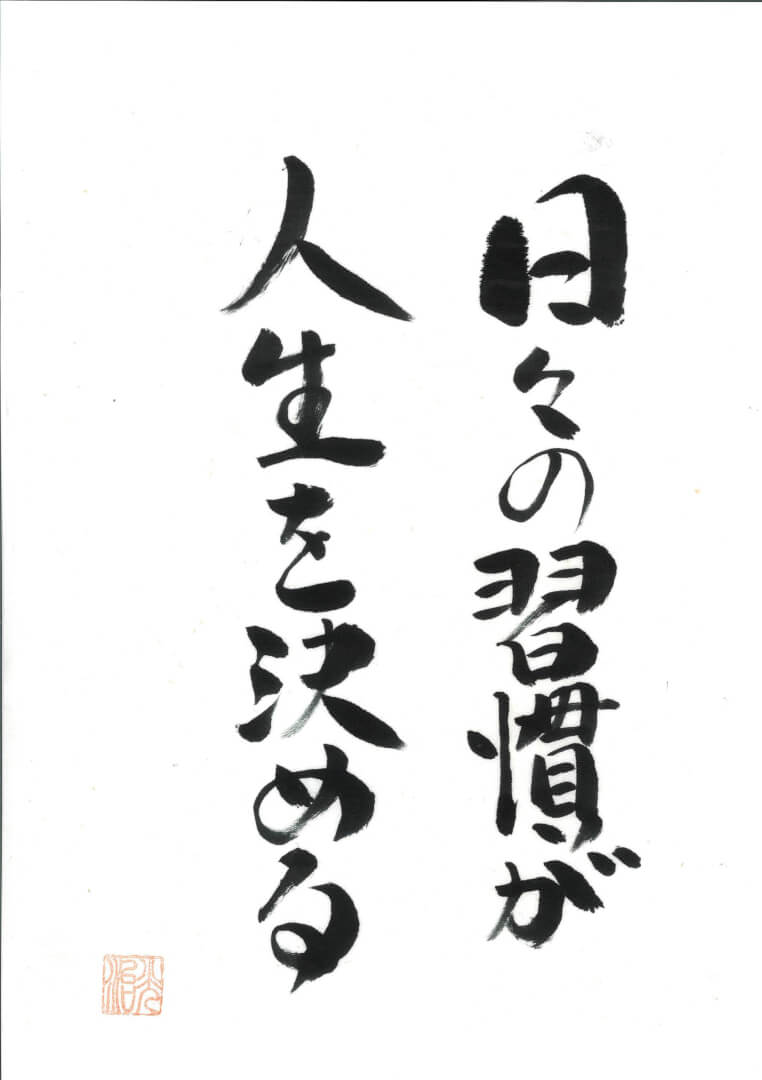 日々の習慣が
人生を決める